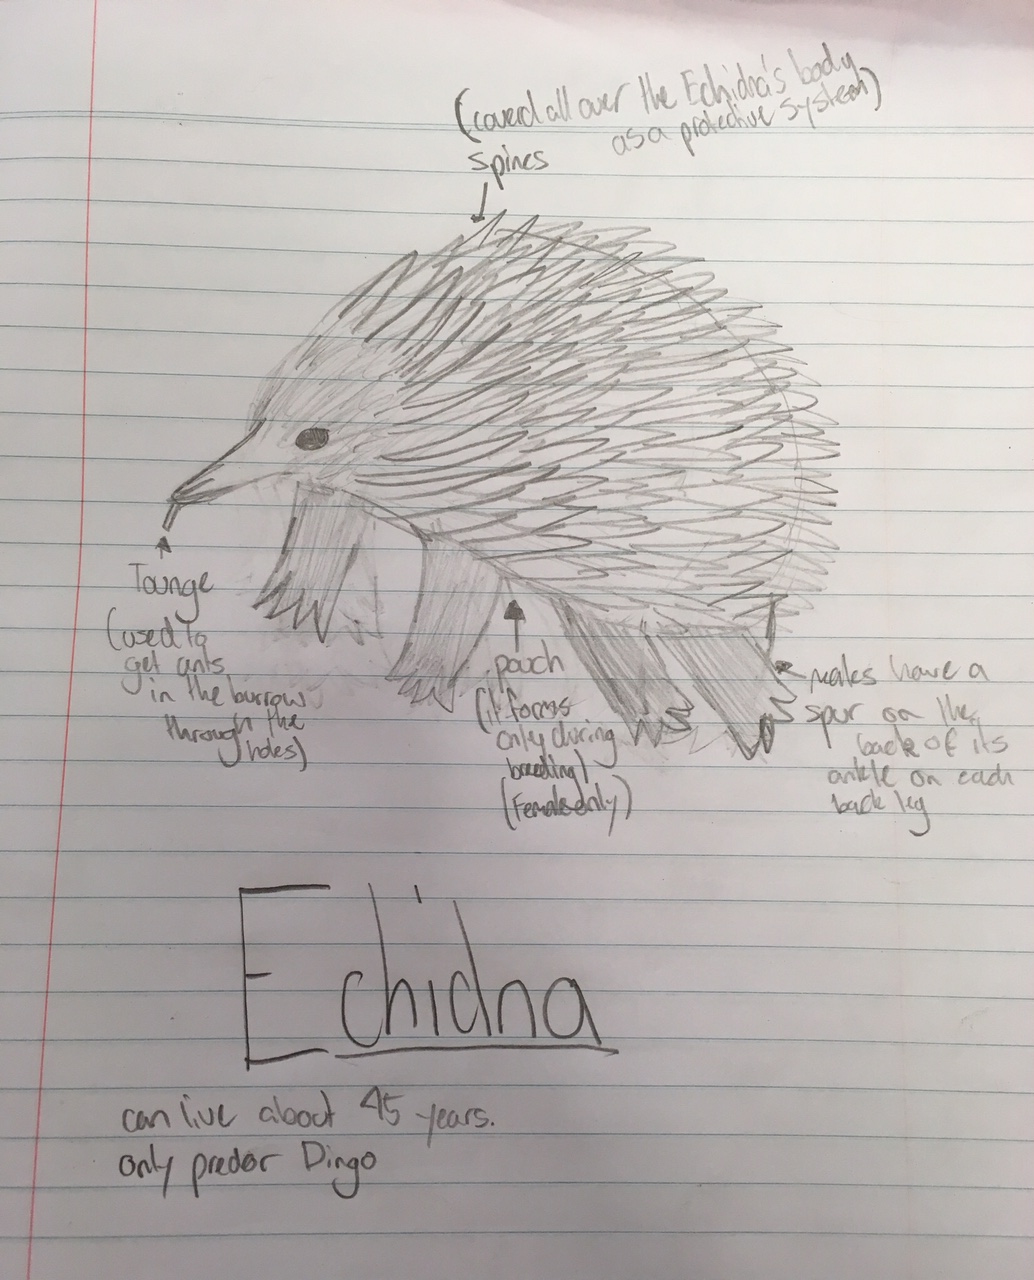 (coverd all over the Echidna's body
as a protective system)
spines
Tounge
(used to
get ants
in the burrow
through the
holes)
pouch
(it forms
only during
breeding)
(Female only)
males have a
spur on the
back of its
ankle on each
back leg
Echidna
can live about 45 years.
only predor Dingo